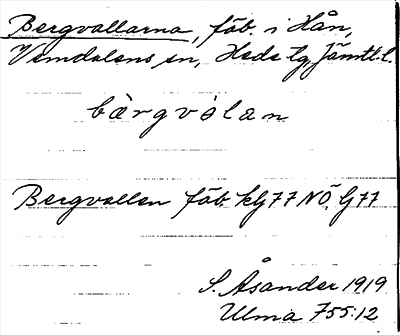 Bergvallarna, fäb. i Hån,
Vemdalens sn, Hede tg, Jämtl. l.
bàrgvólan
Bergvallen fäb. kG77NÖ, G77
S. Åsander 1919
Ulma 755:12